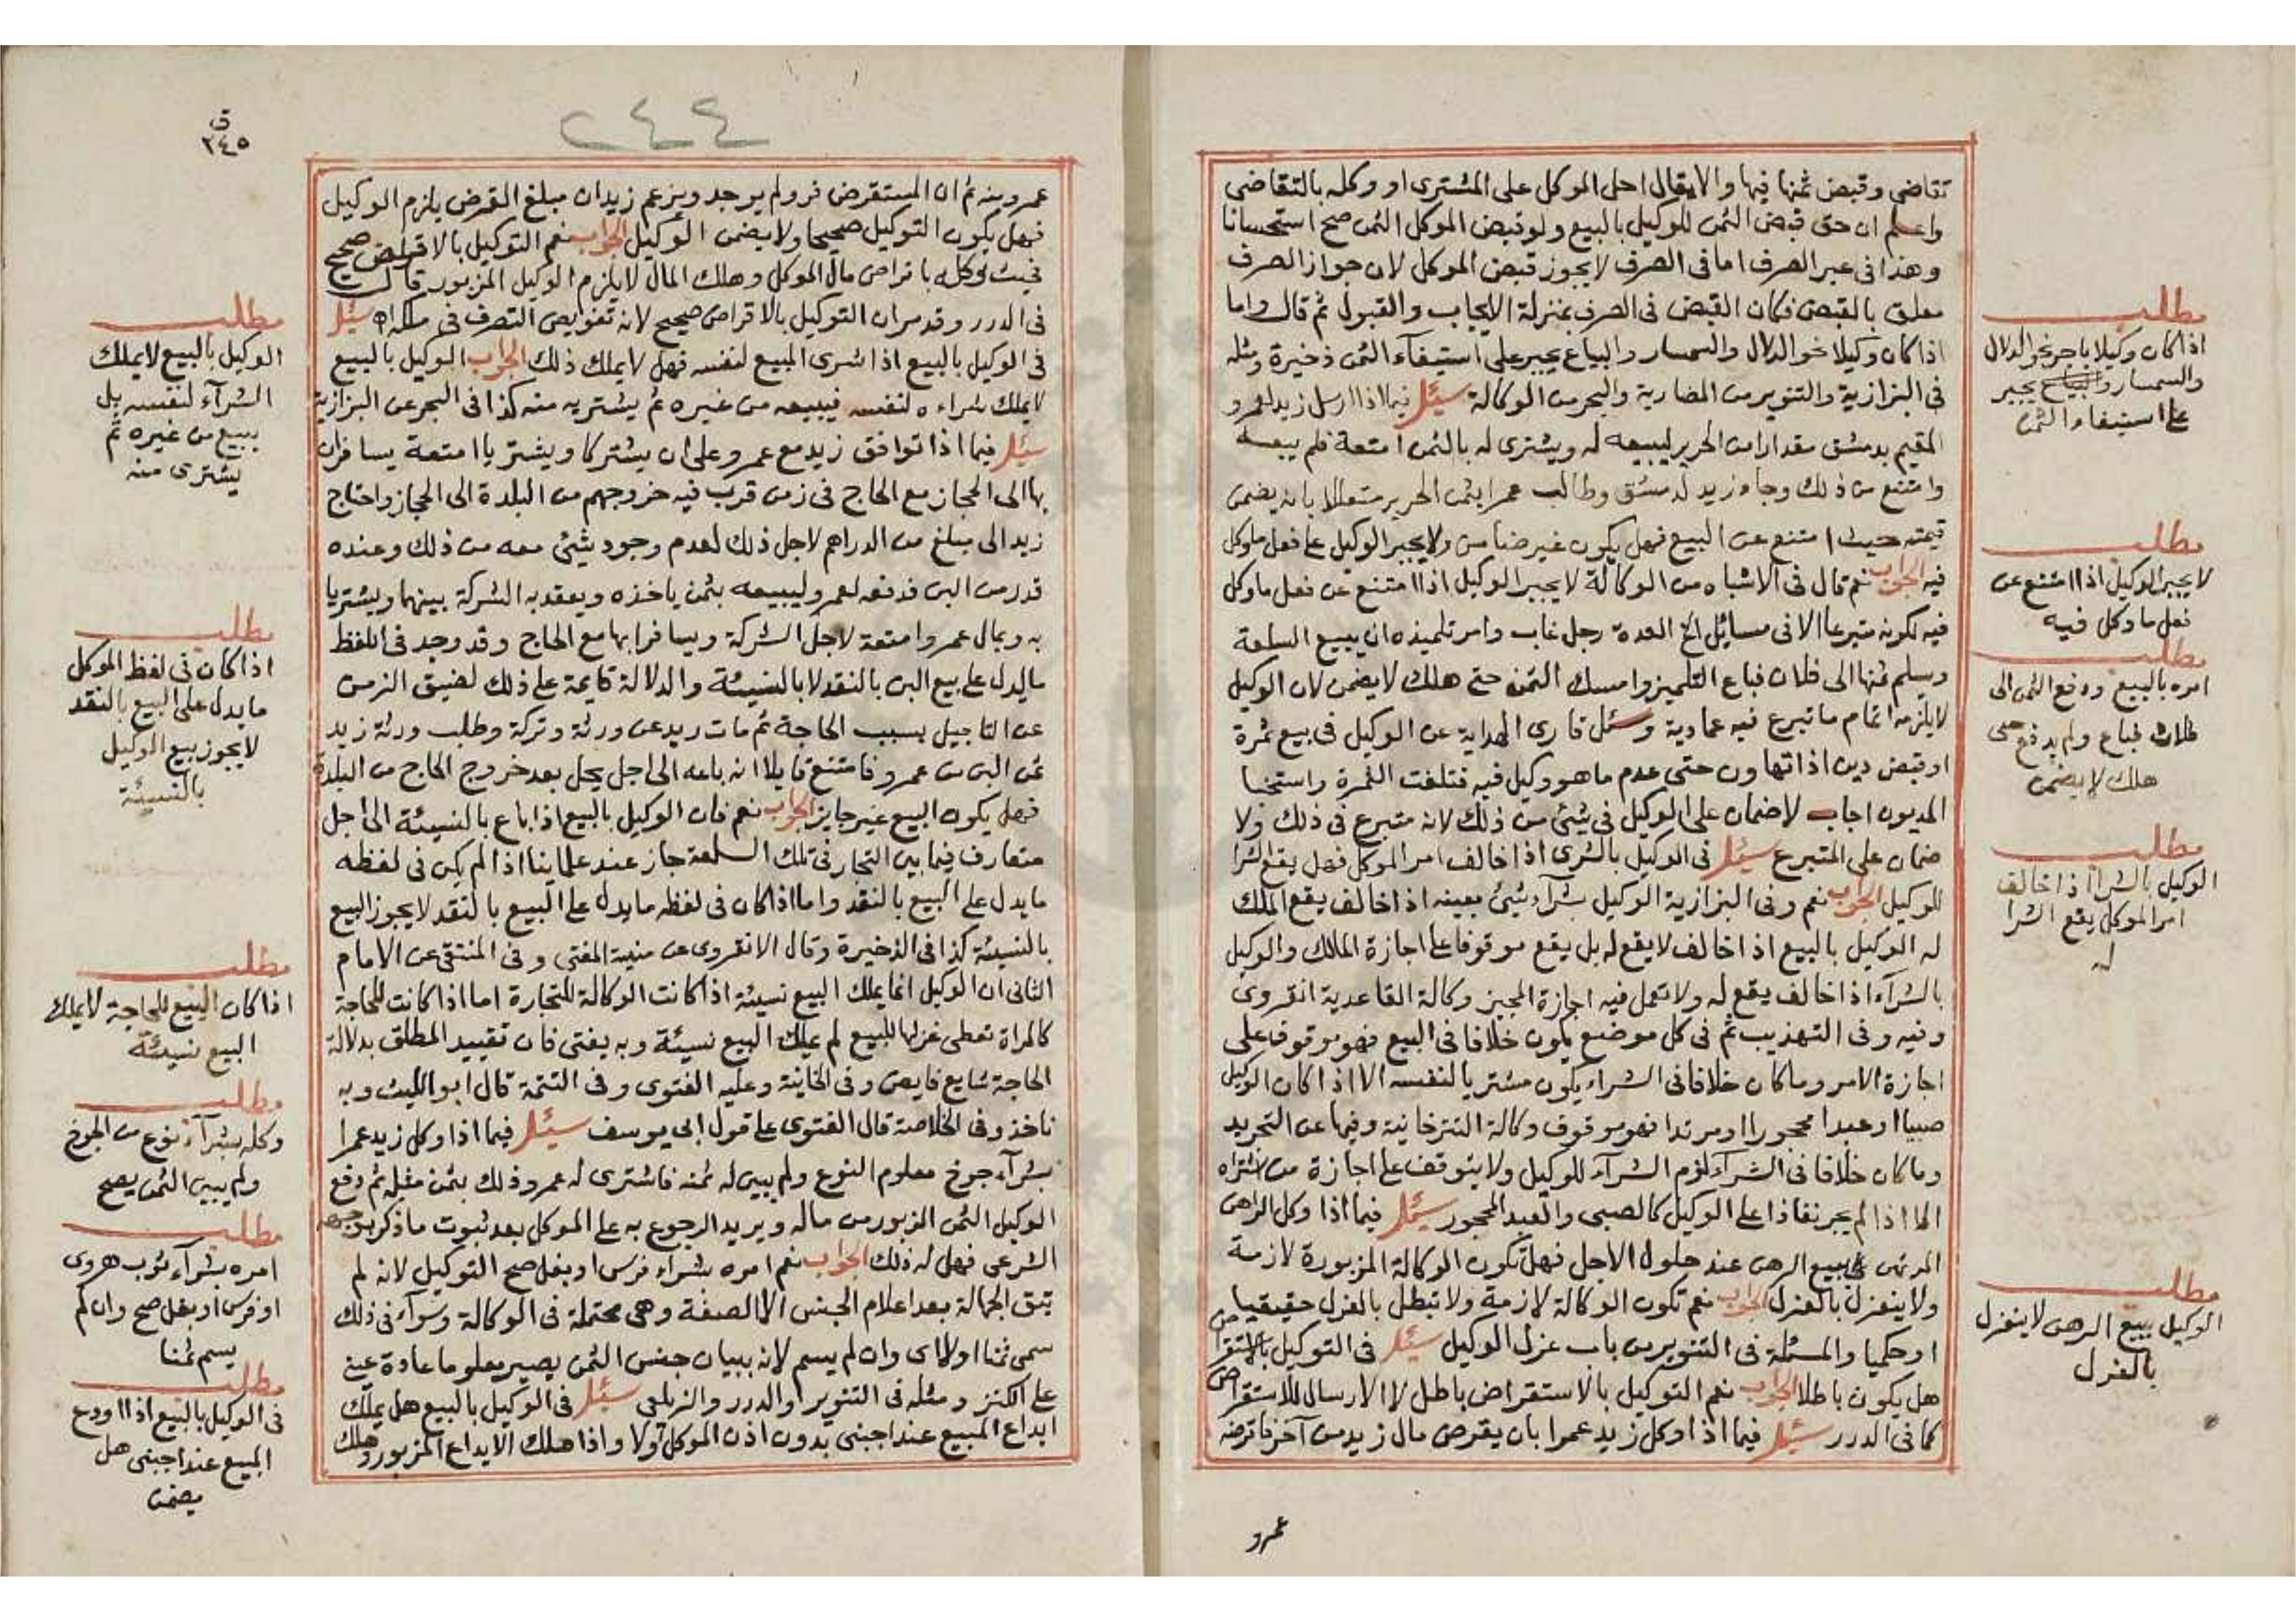 تقاضي وقبض ثمنها فيها والا يقال احل الموكل على المشترى او وكله بالتقاضى
واعلم ان حق قبض الثمن للوكيل بالبيع ولو قبض الموكل الثمن صح استحسانا
وهذا فى غير الصرف اما فى الصرف لا يجوز قبض الموكل لان جواز الصرف
معلق بالقبض فكان القبض فى الصرف بمنزلة الايجاب والقبول ثم قال واما
اذا كان وكيلا نحو الدلال والسمسار والبياع يجبر على استيفآء الثمن ذخيرة ومثله
فى البزازية والتنوير من المضاربة والبحر من الوكالة سئل فيما اذا ارسل زيد لعمرو
المقيم بدمشق مقدارا من الحرير ليبيعه له ويشترى له بالثمن امتعة فلم يبعه
وامتنع من ذلك وجاء زيد لدمشق وطالب عمرا بثمن الحرير متعللا بانه يضمن
قيمته حيث امتنع عن البيع فهل يكون غير ضامن ولا يجبر الوكيل على فعل ما وكل
فيه الجواب نعم قال فى الاشباه من الوكالة لا يجبر الوكيل اذا امتنع عن فعل ما وكل
فيه لكونه متبرعا الا فى مسائل الخ العدة رجل غاب وامر تلميذه ان يبيع السلعة
ويسلم ثمنها الى فلان فباع التلميذ وامسك الثمن حتى هلك لا يضمن لان الوكيل
لا يلزمه اتمام ما تبرع فيه عمادية وسئل قارى الهداية عن الوكيل فى بيع ثمرة
او قبض دين اذا تهاون حتى عدم ما هو وكيل فيه فتلفت الثمرة واستخبا
المديون اجاب لا ضمان على الوكيل فى شئ من ذلك لانه متبرع فى ذلك ولا
ضمان على المتبرع سئل فى الوكيل بالشرى اذا خالف امر الموكل فهل يقع الشرا
للوكيل الجواب نعم وفى البزازية الوكيل بشرآء شئ بعينه اذا خالف يقع الملك
له الوكيل بالبيع اذا خالف لا يقع له بل يقع موقوفا على اجازة المالك والوكيل
بالشرآء اذا خالف يقع له ولا تعمل فيه اجازة المجيز وكالة القاعدية انقروى
وفيه وفى التهذيب ثم فى كل موضع يكون خلافا فى البيع فهو موقوف على
اجازة الامر وما كان خلافا فى الشراء يكون مشتريا لنفسه الا اذا كان الوكيل
صبيا او عبدا محجورا او مرتدا فهو موقوف وكالة التترخانية وفيها عن التجريد
وما كان خلافا فى الشرآء لزم الشرآء للوكيل ولا يتوقف على اجازة من اشتراه
له الا اذا لم يجر نفاذا على الوكيل كالصبى والعبد المحجور سئل فيما اذا وكل الراهن
المرتهن فى بيع الرهن عند حلول الاجل فهل تكون الوكالة المزبورة لازمة
ولا ينعزل بالعزل الجواب نعم تكون الوكالة لازمة ولا تبطل بالعزل حقيقيا
او حكميا والمسئلة فى التنوير من باب عزل الوكيل سئل فى التوكيل بالاستقراض
هل يكون باطلا الجواب نعم التوكيل بالاستقراض باطل لا الارسال للاستقراض
كما فى الدرر سئل فيما اذا وكل زيد عمرا بان يقرض مال زيد من آخر فاقرضه
عمرو
مطلب
اذا كان وكيلا باجر نحو الدلال
والسمسار والبياع يجبر
على استيفاء الثمن
مطلب
لا يجبر الوكيل اذا امتنع عن
فعل ما وكل فيه
مطلب
امره بالبيع ودفع الثمن الى
فلان فباع ولم يدفع حتى
هلك لا يضمن
مطلب
الوكيل بالشرا اذا خالف
امر الموكل يقع الشرا
له
مطلب
الوكيل ببيع الرهن لا ينعزل
بالعزل
٢٤٤
ق
٢٤٥
عمرو منه ثم ان المستقرض فر ولم يوجد ويزعم زيد ان مبلغ القرض يلزم الوكيل
فهل يكون التوكيل صحيحا ولا يضمن الوكيل الجواب نعم التوكيل بالاقراض صحيح
فحيث توكل باقراض مال الموكل وهلك المال لا يلزم الوكيل المزبور قال
فى الدرر وقد مر ان التوكيل بالاقراض صحيح لانه تفويض التصرف فى ملكه اه سئل
فى الوكيل بالبيع اذا شرى المبيع لنفسه فهل لا يملك ذلك الجواب الوكيل بالبيع
لا يملك شراءه لنفسه فيبيعه من غيره ثم يشتريه منه كذا فى البحر عن البزازية
سئل فيما اذا توافق زيد مع عمرو على ان يشتركا ويشتريا امتعة يسافران
بها الى الحجاز مع الحاج فى زمن قرب فيه خروجهم من البلدة الى الحجاز واحتاج
زيد الى مبلغ من الدراهم لاجل ذلك لعدم وجود شئ معه من ذلك وعنده
قدر من البن فدفعه لعمرو ليبيعه بثمن ياخذه ويعقد به الشركة بينهما ويشتريا
به وبمال عمرو امتعة لاجل الشركة ويسافرا بها مع الحاج وقد وجد فى اللفظ
ما يدل على بيع البن بالنقد لا بالنسيئة والدلالة قايمة على ذلك لضيق الزمن
عن التاجيل بسبب الحاجة ثم مات زيد عن ورثة وتركة وطلب ورثة زيد
ثمن البن من عمرو فامتنع قايلا انه باعه الى اجل يحل بعد خروج الحاج من البلدة
فهل يكون البيع غير جايز الجواب نعم فان الوكيل بالبيع اذا باع بالنسيئة الى اجل
متعارف فيما بين التجار فى تلك السلعة جاز عند علماينا اذا لم يكن فى لفظه
ما يدل على البيع بالنقد واما اذا كان فى لفظه ما يدل على البيع بالنقد لا يجوز البيع
بالنسيئة كذا فى الذخيرة وقال الانقروى عن منية المفتى وفى المنتقى عن الامام
الثانى ان الوكيل انما يملك البيع نسيئة اذا كانت الوكالة للتجارة اما اذا كانت للحاجة
كالمراة تعطى غزلها للبيع لم يملك البيع نسيئة وبه يفتى فان تقييد المطلق بدلالة
الحاجة شايع فايض وفى الخانية وعليه الفتوى وفى التتمة قال ابو الليث وبه
ناخذ وفى الخلاصة قال الفتوى على قول ابى يوسف سئل فيما اذا وكل زيد عمرا
بشرآء جوخ معلوم النوع ولم يبين له ثمنه فاشترى له عمرو ذلك بثمن مثله ثم دفع
الوكيل الثمن المزبور من ماله ويريد الرجوع به على الموكل بعد ثبوت ما ذكر بوجهه
الشرعى فهل له ذلك الجواب نعم امره بشراء فرس او بغل صح التوكيل لانه لم
تبق الجهالة بعد اعلام الجنس الا الصفة وهى محتملة فى الوكالة وسوآء فى ذلك
سمى ثمنا او لا اى وان لم يسم لانه ببيان جنس الثمن يصير معلوما عادة عينى
على الكنز ومثله فى التنوير والدرر والزيلعى سئل فى الوكيل بالبيع هل يملك
ايداع المبيع عند اجنبى بدون اذن الموكل اولا واذا هلك الايداع المزبور وهلك
مطلب
الوكيل بالبيع لا يملك
الشرآء لنفسه بل
يبيع من غيره ثم
يشترى منه
مطلب
اذا كان فى لفظ الموكل
ما يدل على البيع بالنقد
لا يجوز بيع الوكيل
بالنسيئة
مطلب
اذا كان البيع للحاجة لا يملك
البيع نسيئة
مطلب
وكله بشرآء نوع من الجوخ
ولم يبين الثمن يصح
مطلب
امره بشرآء ثوب هروى
او فرس او بغل صح وان لم
يسم ثمنا
مطلب
فى الوكيل بالبيع اذا اودع
المبيع عند اجنبى هل
يضمن